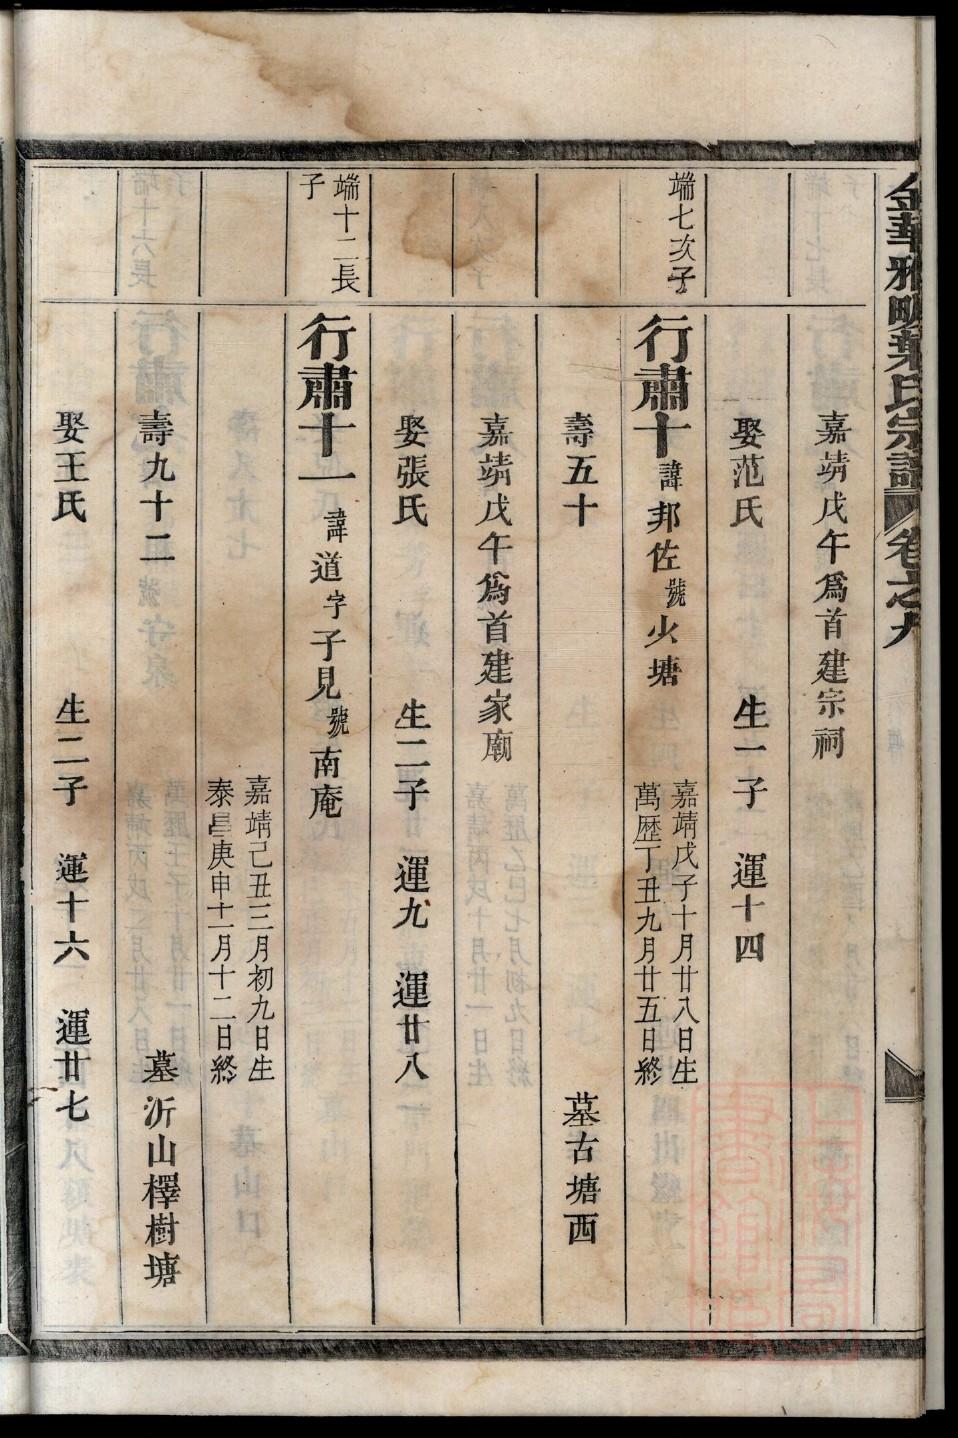 金華雅畈葉氏宗譜 卷之九
嘉靖戊午爲首建宗祠
娶范氏 生一子 運十四
端七次子
行肅十 諱邦佐 號少塘 嘉靖戊子十月廿八日生 萬歷丁丑九月廿五日終
壽五十 墓古塘西
嘉靖戊午爲首建家廟
娶張氏 生二子 運九 運廿八
端十二長子
行肅十一 諱道 字子見 號南庵
嘉靖己丑三月初九日生 泰昌庚申十一月十二日終
壽九十二 墓沂山檡樹塘
娶王氏 生二子 運十六 運廿七